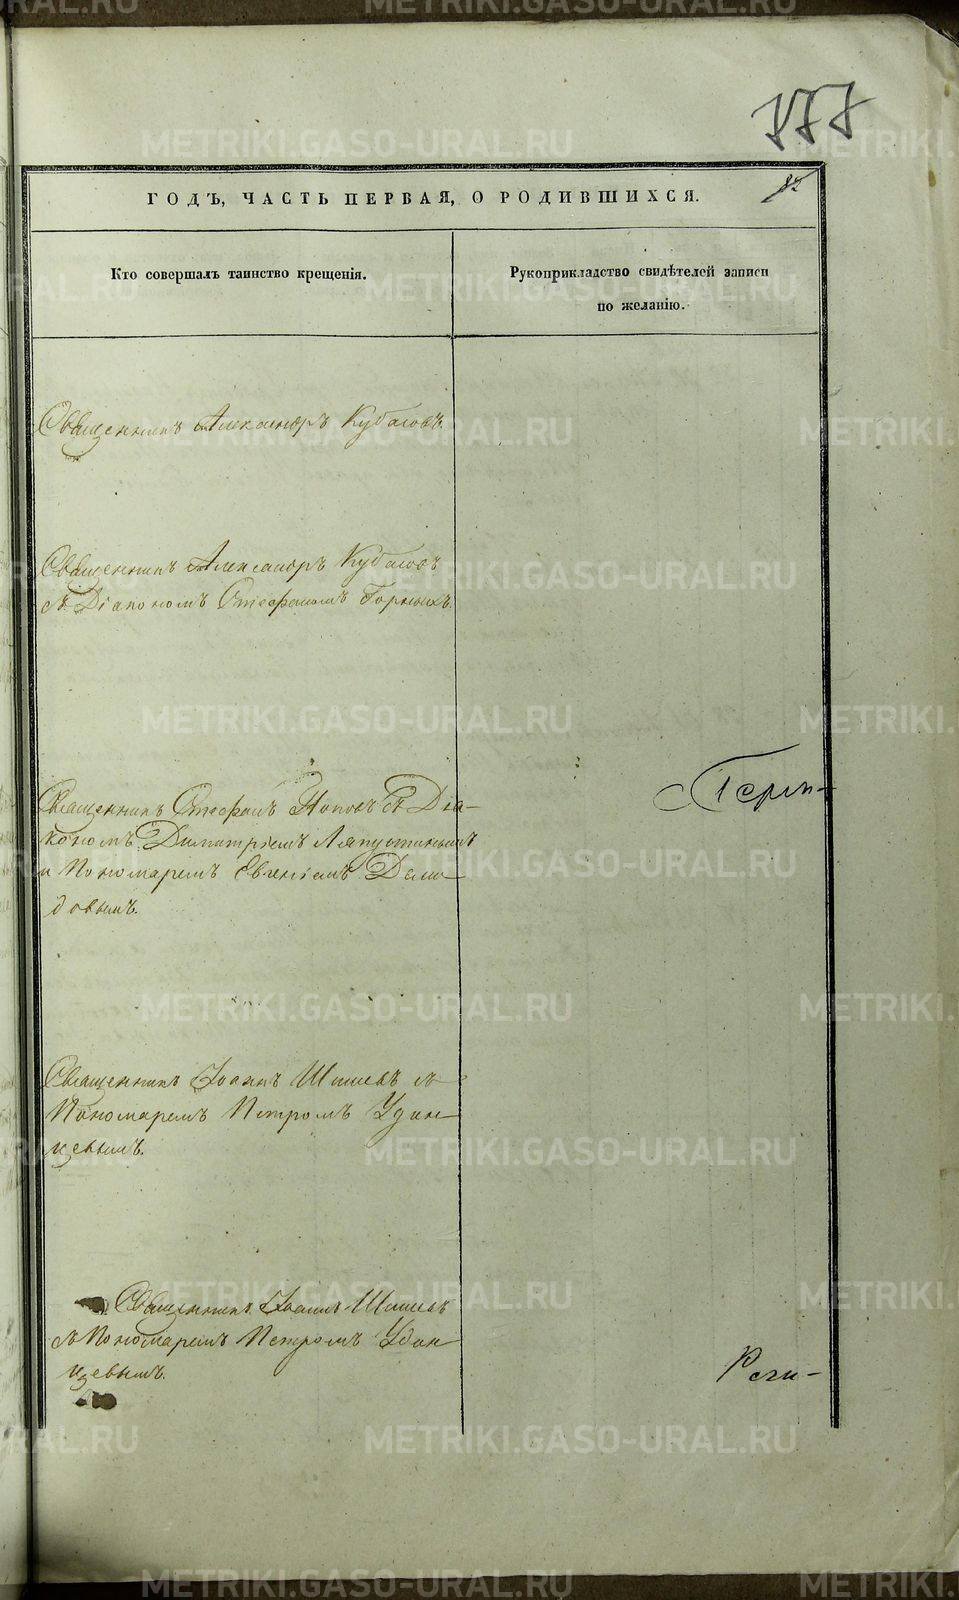 777
82
ГОДЪ, ЧАСТЬ ПЕРВАЯ, О РОДИВШИХСЯ.
Кто совершалъ таинство крещенія.
Рукоприкладство свидѣтелей записи
по желанію.
Священникъ Александръ Кубасовъ.
Священникъ Александръ Кубасовъ
съ Діакономъ Стефаномъ Горныхъ.
Священникъ Стефанъ Поповъ съ Діа-
кономъ Димитріемъ Ляпустинымъ
и Пономаремъ Евгеніемъ Деми-
довымъ.
Герм-
Священникъ Іоаннъ Шишевъ съ
Пономаремъ Петромъ Удин-
цевымъ.
Священникъ Іоаннъ Шишевъ
съ Пономаремъ Петромъ Удин
цевымъ.
METRIKI.GASO-URAL.RU